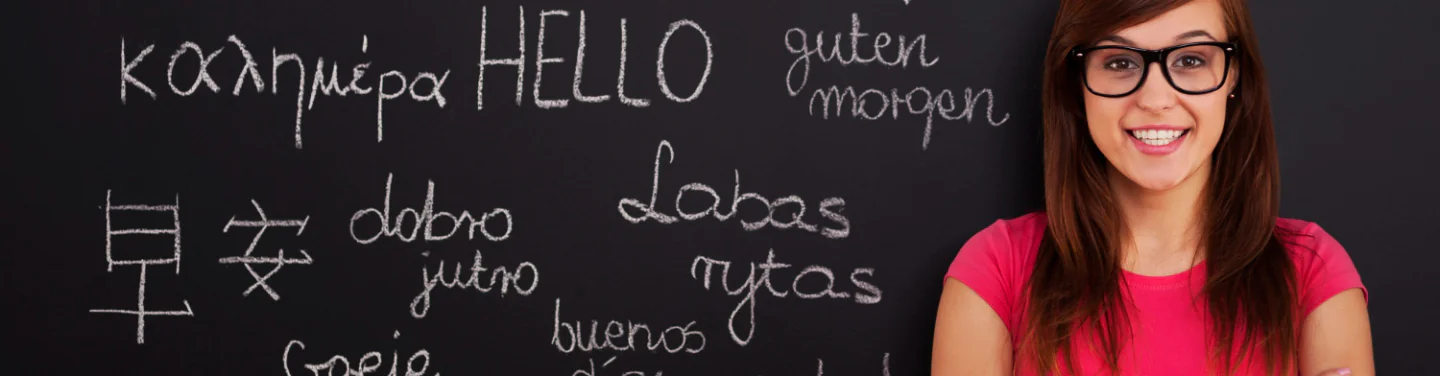 καλημέρα HELLO guten
morgen
早安 dobro Labas
jutro rytas
buenos